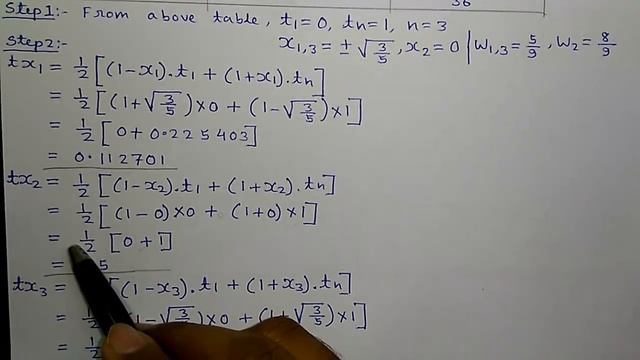 36
Step1:- From above table, t₁=0, tn=1, n=3
Step2:- x₁,₃ = ± √(3/5), x₂=0 | W₁,₃ = 5/9, W₂ = 8/9
tx₁ = 1/2 [(1-x₁).t₁ + (1+x₁).tn]
= 1/2 [(1+√(3/5))×0 + (1-√(3/5))×1]
= 1/2 [0+0.225403]
= 0.112701
tx₂ = 1/2 [(1-x₂).t₁ + (1+x₂).tn]
= 1/2 [(1-0)×0 + (1+0)×1]
= 1/2 [0+1]
= 5
tx₃ = [(1-x₃).t₁ + (1+x₃).tn]
= 1/2 1-√(3/5))×0 + (1+√(3/5))×1]
= 1/2